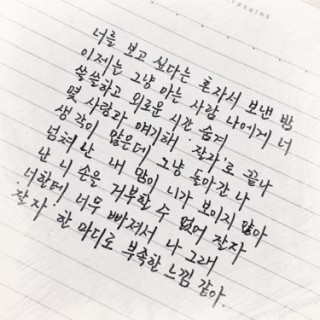 너를 보고 싶다는 혼자서 보낸 밤
이제는 그냥 아는 사람 나에게 너
쓸쓸하고 외로운 시간 숨겨
몇 사랑과 얘기해 '잘자'로 끝나
생각이 많은데 그냥 돌아간 나
넘쳐 난 내 맘이 니가 보이지 않아
난 니 손을 거부할 수 없어 잘자
너한테 너무 빠져서 나 그래
'잘자' 한 마디로 부족한 느낌 같아